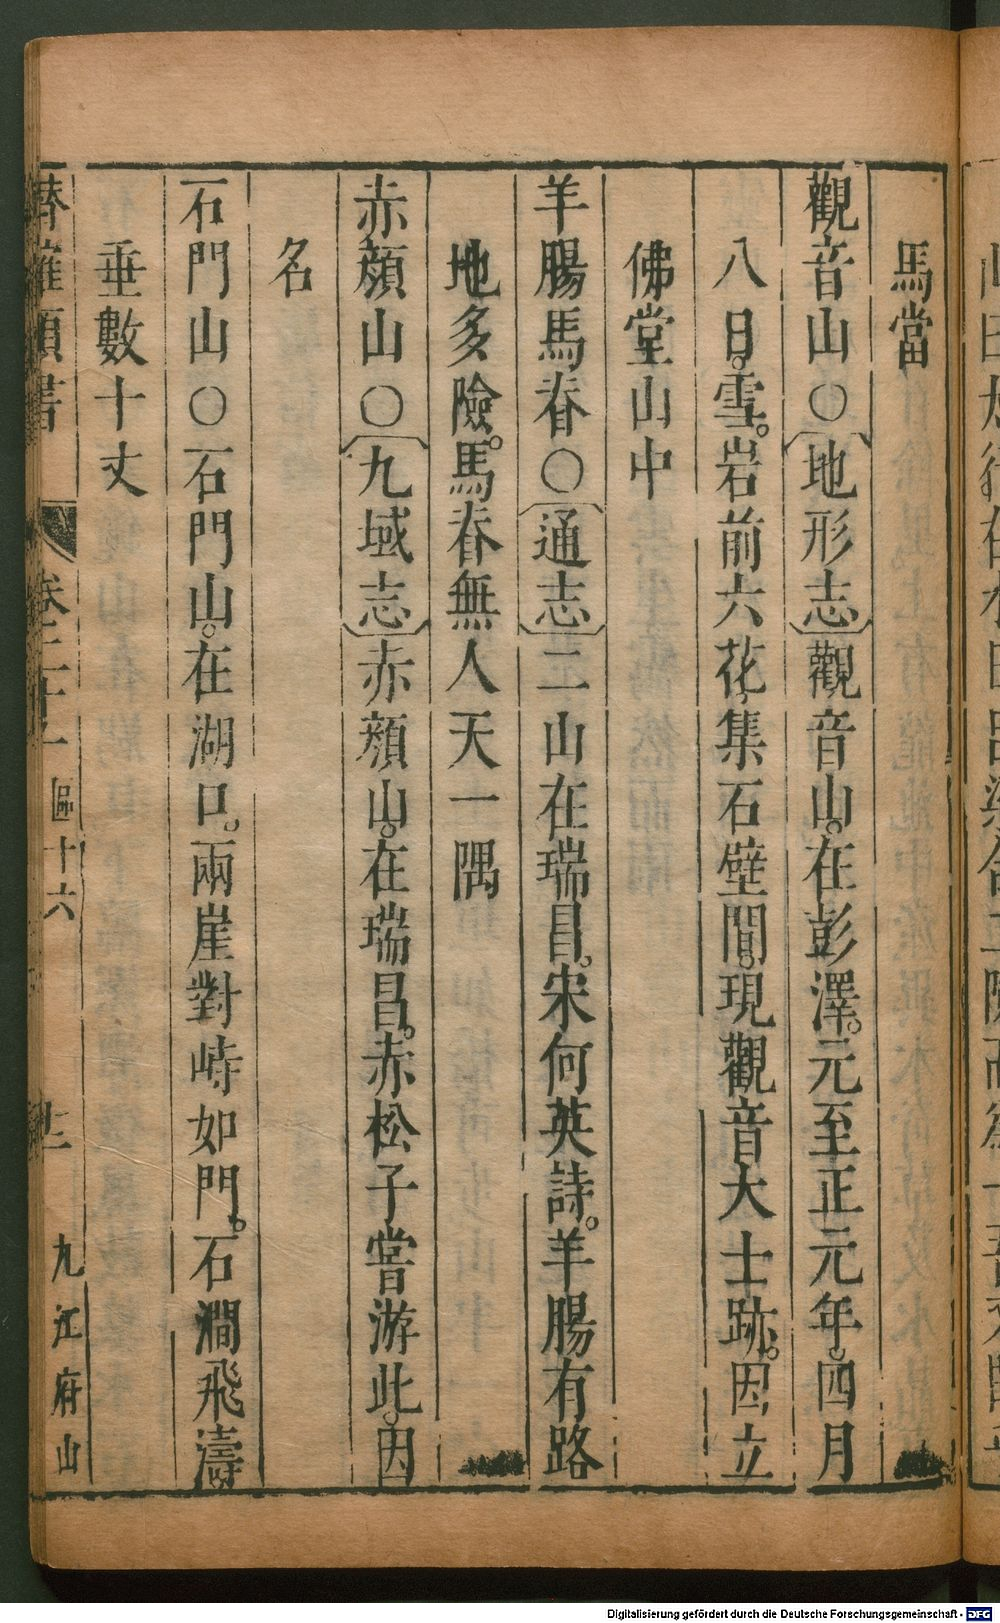 馬當
觀音山○〔地形志〕觀音山。在彭澤。元至正元年。四月
八日。雪。岩前六花。集石壁間。現觀音大士跡。因立
佛堂山中
羊腸馬春○〔通志〕二山在瑞昌。宋何英詩。羊腸有路
地多險。馬春無人天一隅
赤顏山○〔九域志〕赤顏山。在瑞昌。赤松子嘗游此。因
名
石門山○石門山。在湖口。兩崖對峙如門。石澗飛濤
垂數十丈
類書 卷二十 區十六 九江府山
Digitalisierung gefördert durch die Deutsche Forschungsgemeinschaft - DFG